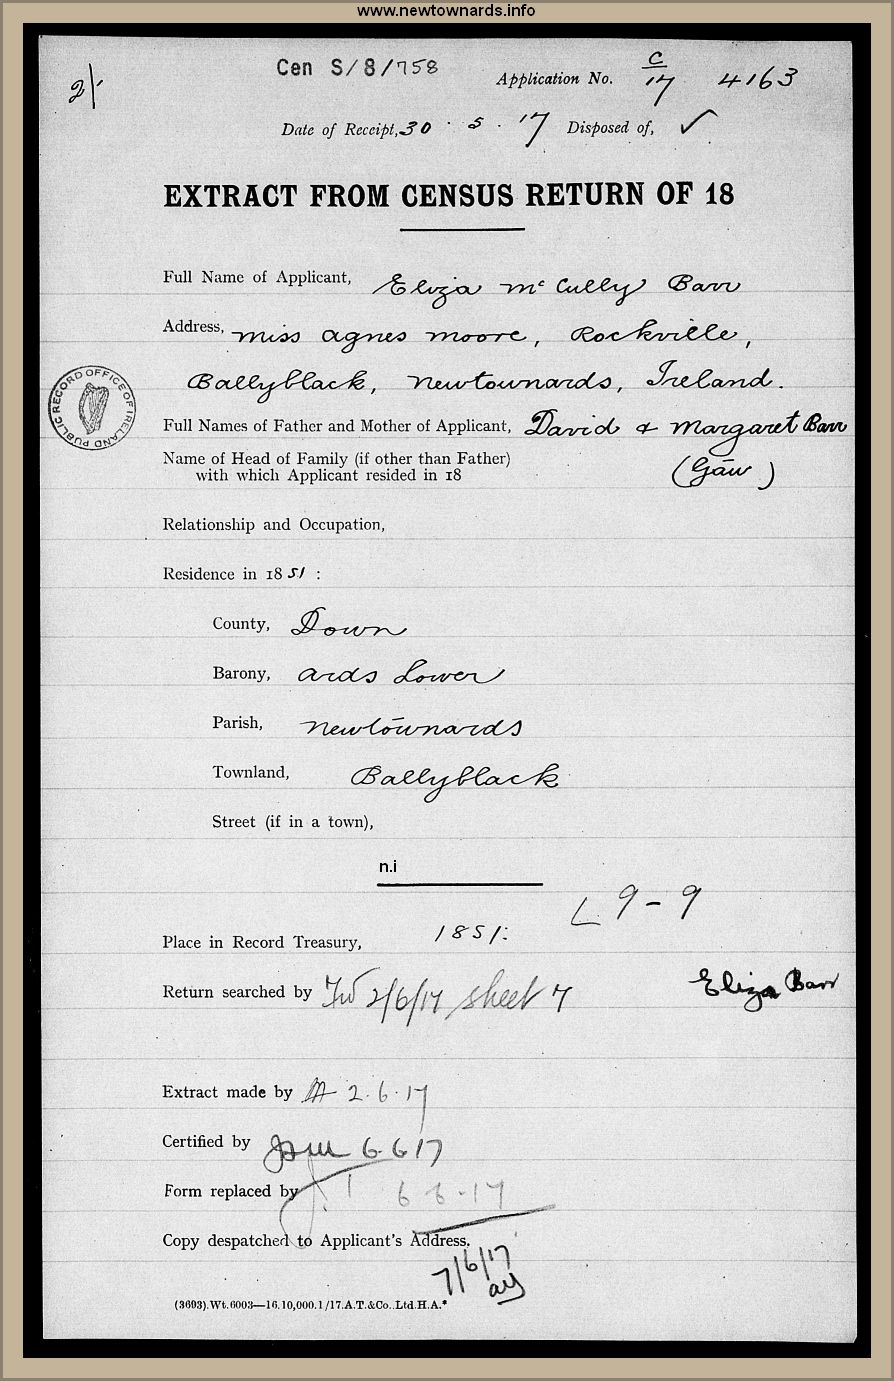 www.newtownards.info
2/-
Cen S/8/758
Application No. C/17 4163
Date of Receipt, 30 . 5 . 17 Disposed of, ✓
EXTRACT FROM CENSUS RETURN OF 18
Full Name of Applicant, Eliza McCully Barr
Address, Miss Agnes Moore, Rockville,
Ballyblack, Newtownards, Ireland.
PUBLIC RECORD OFFICE OF IRELAND
Full Names of Father and Mother of Applicant, David & Margaret Barr
Name of Head of Family (if other than Father)
with which Applicant resided in 18
(Gaw)
Relationship and Occupation,
Residence in 1851 :
County, Down
Barony, Ards Lower
Parish, Newtownards
Townland, Ballyblack
Street (if in a town),
n.i
L 9-9
Place in Record Treasury, 1851:
Return searched by 2/6/17 sheet 7
Eliza Barr
Extract made by 2.6.17
Certified by 6.6.17
Form replaced by 6.6.17
Copy despatched to Applicant's Address.
7/6/17
(3603).Wt.6003—16.10,000.1/17.A.T.&Co.,Ltd.H.A.*